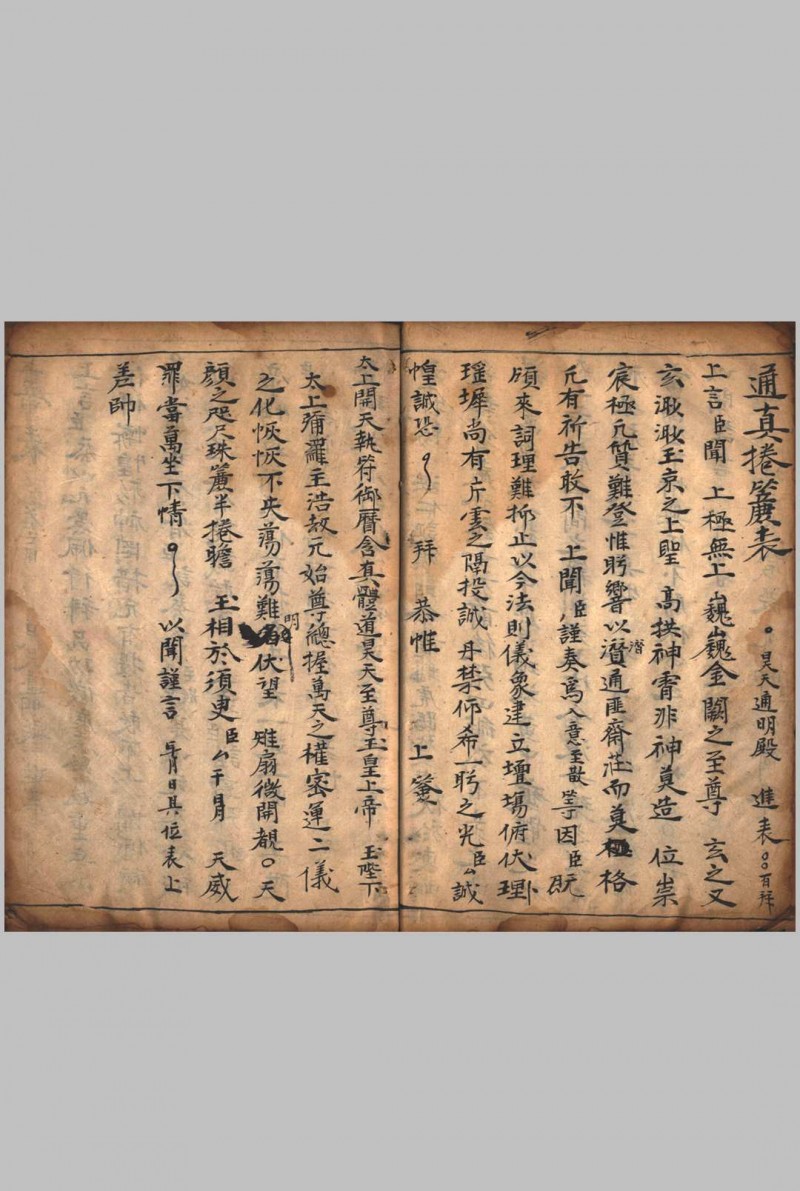 通真捲簾表　昊天通明殿　進表○○百拜
上言臣聞　上極無上巍巍金闕之至尊　玄之又
玄湫湫玉京之上聖　高拱神霄非神莫造　位崇
宸極凡質難登惟盻嚮以潛通匪齋莊而莫格
凡有祈告敢不　上聞臣謹奏爲入意至散等因臣既
頎來詞理難抑止以今法則儀象建立壇塲俯伏
瑶墀尚有片雲之隔投誠　丹禁仰希一盻之光臣厶誠
惶誠恐　拜　恭惟　上
太上開天執符御曆含真體道昊天至尊玉皇上帝　玉陛下
太上彌羅主浩劫元始尊總握萬天之權密運二儀
之化恢恢不夫蕩蕩難明伏望　雉扇微開覩○天
顔之咫尺珠簾半捲瞻　玉相於須臾臣厶干冒　天威
罪當萬坐下情　以聞謹言　年月日具位表上
差帥